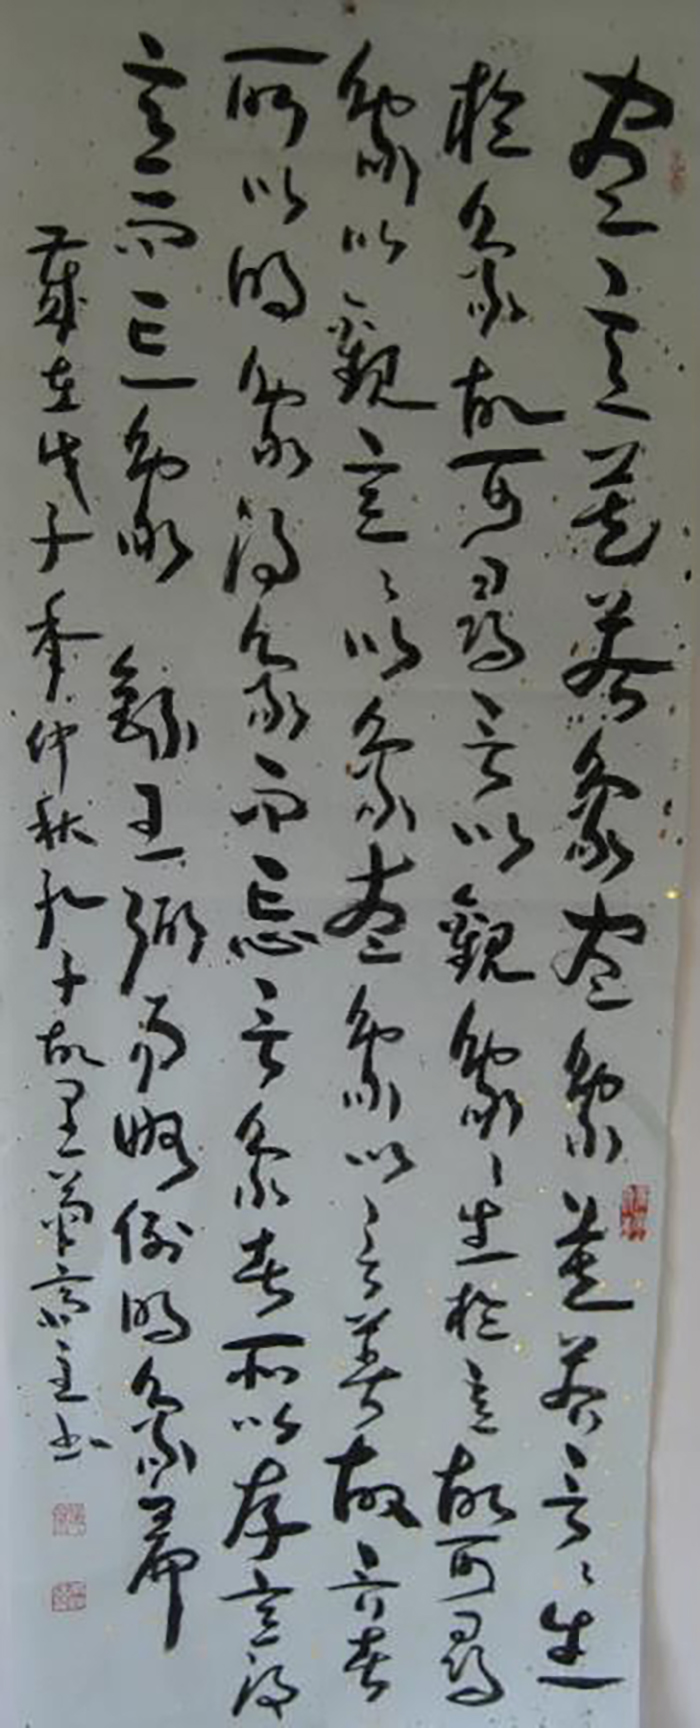 盡意莫若象盡象莫若言〻生
於象故可尋言以觀象〻生於意故可尋
象以觀意〻以象盡象以言著故言者
所以明象得象而忘言象者所以存意得
意而忘象 錄王弼易略例明象篇
歲在戊子年仲秋孔子故里斋主书